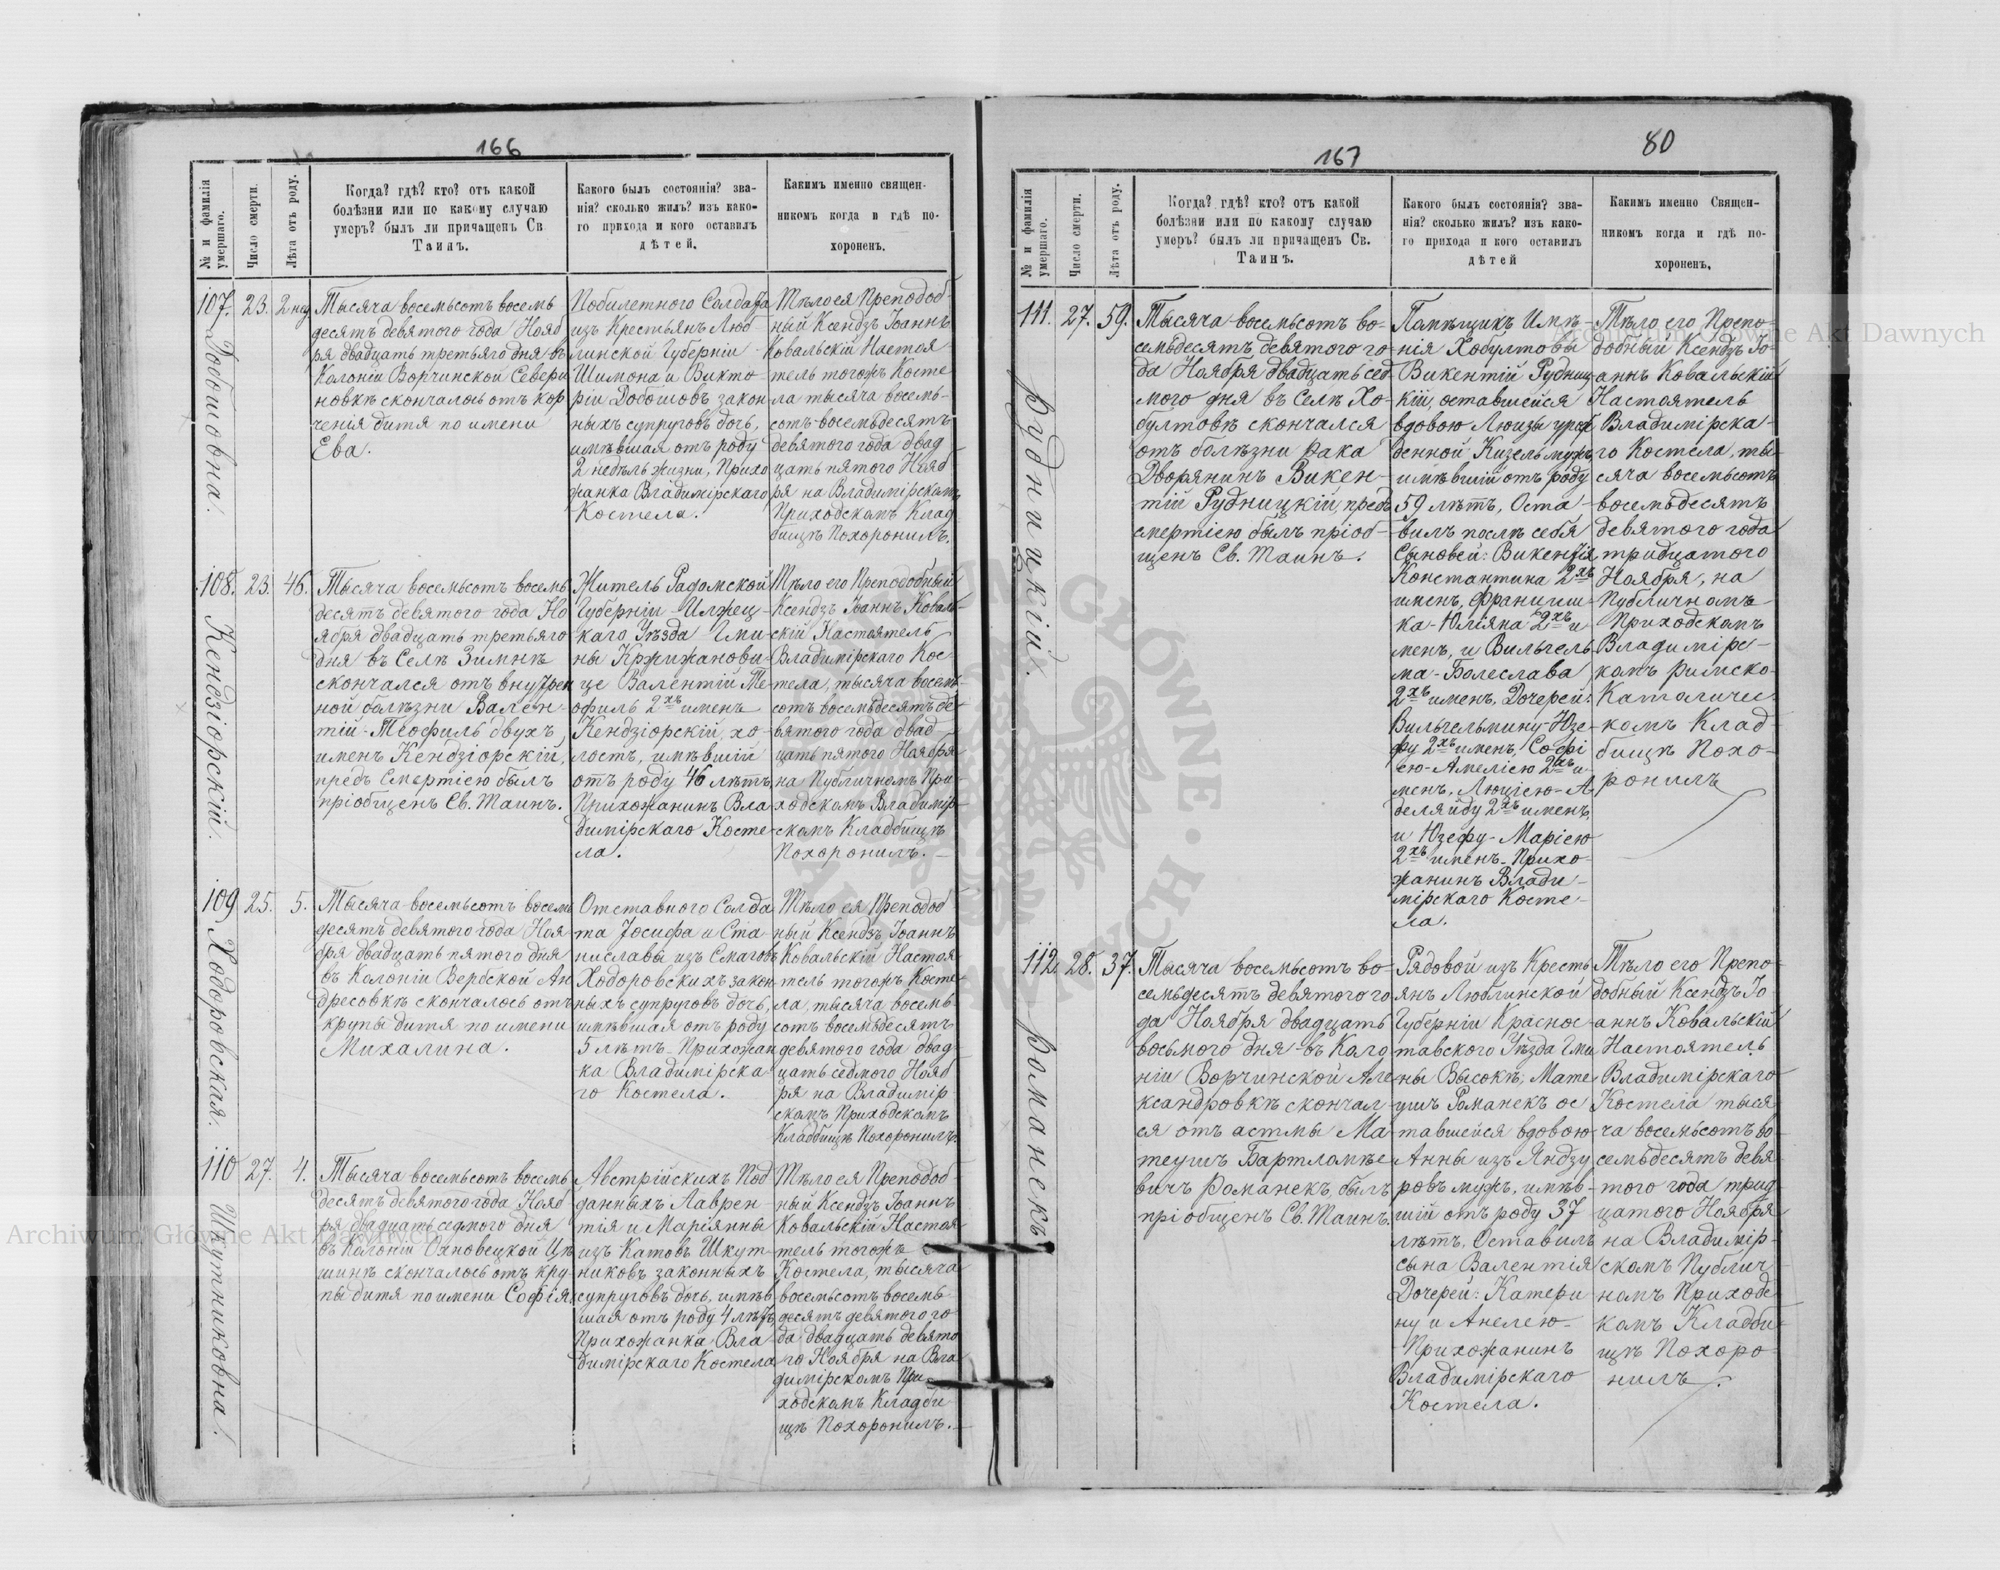 166
№ и фамилія умершаго.
Число смерти.
Лѣта отъ роду.
Когда? гдѣ? кто? отъ какой
болѣзни или по какому случаю
умеръ? былъ ли причащенъ Св.
Таинъ.
Какого былъ состоянія? зва-
нія? сколько жилъ? изъ како-
го прихода и кого оставилъ
дѣтей.
Какимъ именно священ-
никомъ когда и гдѣ по-
хороненъ.
107.
Добошовна.
23.
2 нед
Тысяча восемьсотъ восемь
десятъ девятого года Нояб
ря двадцать третьяго дня въ
Колоніи Ворчинской Севери
новкѣ скончалось отъ кор
ченія дитя по имени
Ева.
Побилетного Солдата
изъ Крестьянъ Люб-
линской Губерніи
Шимона и Викто-
ріи Добошовъ закон
ныхъ супруговъ дочь,
имѣвшая отъ роду
2 недѣль жизни, Прихо
жанка Владимірскаго
Костела.
Тѣло ея Преподоб
ный Ксендзъ Іоаннъ
Ковальскій Настоя-
тель тогожъ Косте
ла тысяча восемь-
сотъ восемьдесятъ
девятого года двад
цать пятого Нояб
ря на Владимірскомъ
Приходскомъ Клад
бищѣ Похоронилъ.
108.
Кендзіорскій.
23.
46.
Тысяча восемьсотъ восемь
десятъ девятого года Но
ября двадцать третьяго
дня въ Селѣ Зимнѣ
скончался отъ внутрен
ной болѣзни Вален-
тій-Теофиль двухъ
именъ Кендзіорскій,
предъ Смертію былъ
пріобщенъ Св. Таинъ.
Житель Радомской
Губерніи Илжец-
каго Уѣзда Гми-
ны Кржижанови-
це Валентій Те-
офиль 2хъ именъ
Кендзіорскій, хо-
лостъ, имѣвшій
отъ роду 46 лѣтъ,
Прихожанинъ Вла
димірскаго Косте-
ла.
Тѣло его Преподобный
Ксендзъ Іоаннъ Коваль-
скій Настоятель
Владимірскаго Кос-
тела, тысяча восемь-
сотъ восемьдесятъ де-
вятого года двад
цать пятого Ноября
на Публичномъ При-
ходскомъ Владимір-
скомъ Кладбищѣ
Похоронилъ.
109
Ходоровская.
25.
5.
Тысяча восемьсотъ восемь
десятъ девятого года Ноя-
бря двадцать пятого дня
въ Колоніи Вербской Ан
дресовкѣ скончалось отъ
крупы дитя по имени
Михалина.
Отставного Солда
та Іосифа и Ста-
ниславы изъ Смаговъ
Ходоровскихъ закон
ныхъ супруговъ дочь,
имѣвшая отъ роду
5 лѣтъ. Прихожан
ка Владимірска
го Костела.
Тѣло ея Преподоб
ный Ксендзъ Іоаннъ
Ковальскій Настоя
тель тогожъ Косте
ла, тысяча восемь-
сотъ восемьдесятъ
девятого года двад-
цать седмого Нояб
ря на Владимір
скомъ Приходскомъ
Кладбищѣ Похоронилъ.
110
Шкутниковна.
27.
4.
Тысяча восемьсотъ восемь
десятъ девятого года Нояб
ря двадцать седмого дня
въ Колоніи Охновецкой Це
шинѣ скончалось отъ кру
пы дитя по имени Софія.
Австрійскихъ Под
данныхъ Лаврен-
тія и Маріянны
изъ Катовъ Шкут
никовъ законныхъ
супруговъ дочь, имѣв
шая отъ роду 4 лѣтъ
Прихожанка Вла
димірскаго Костела
Тѣло ея Преподоб-
ный Ксендзъ Іоаннъ
Ковальскій Настоя
тель тогожъ
Костела, тысяча
восемьсотъ восемь-
десятъ девятого го
да двадцать девято
го Ноября на Вла-
димірскомъ При-
ходскомъ Кладби
щѣ Похоронилъ.
167
80
№ и фамилія умершаго.
Число смерти.
Лѣта отъ роду.
Когда? гдѣ? кто? отъ какой
болѣзни или по какому случаю
умеръ? былъ ли причащенъ Св.
Таинъ.
Какого былъ состоянія? зва-
нія? сколько жилъ? изъ како-
го прихода и кого оставилъ
дѣтей
Какимъ именно Священ-
никомъ когда и гдѣ по-
хороненъ,
111.
Рудницкій.
27.
59.
Тысяча восемьсотъ во-
семьдесятъ девятого го-
да Ноября двадцать сед
мого дня въ Селѣ Хо-
бултовѣ скончался
отъ болѣзни рака
Дворянинъ Викен-
тій Рудницкій, предъ
смертіею былъ пріоб-
щенъ Св. Таинъ.
Помѣщикъ Имѣ-
нія Хобултовы
Викентій Рудниц
кій, оставшейся
вдовою Люизы урож
денной Кизель мужъ
имѣвшій отъ роду
59 лѣтъ, Оста-
вилъ послѣ себя
Сыновей: Викентія
Константина 2хъ
именъ, Францыш-
ка-Юліяна 2хъ и-
менъ, и Вильгель
ма-Болеслава
2хъ именъ, Дочерей:
Вильгельмину-Юзе-
фу 2хъ именъ, Софі
ею-Амеліею 2хъ и-
менъ, Люціею-А
деляйду 2хъ именъ,
и Юзефу-Маріею
2хъ именъ. Прихо-
жанинъ Влади-
мірскаго Косте-
ла.
Тѣло его Препо-
добный Ксендзъ Іо-
аннъ Ковальскій
Настоятель
Владимірска-
го Костела, ты-
сяча восемьсотъ
восемьдесятъ
девятого года
тридцатого
Ноября, на
Публичномъ
Приходскомъ
Владимірс-
комъ Римско-
Католичес-
комъ Клад-
бищѣ Похо-
ронилъ
112.
Романекъ
28.
37.
Тысяча восемьсотъ во-
семьдесятъ девятого го
да Ноября двадцать
восьмого дня въ Коло
ніи Ворчинской Але
ксандровкѣ скончал-
ся отъ астмы Ма-
теушъ Бартломѣе
вичъ Романекъ, былъ
пріобщенъ Св. Таинъ.
Рядовой изъ Кресть
янъ Люблинской
Губерніи Краснос-
тавского Уѣзда Гми
ны Высокѣ, Мате
ушъ Романекъ ос
тавшейся вдовою
Анны изъ Яндзу
ровъ мужъ, имѣв-
шій отъ роду 37
лѣтъ. Оставилъ
сына Валентія
Дочерей: Катери
ну и Анелею
Прихожанинъ
Владимірскаго
Костела.
Тѣло его Препо-
добный Ксендзъ Іо-
аннъ Ковальскій
Настоятель
Владимірскаго
Костела тыся
ча восемьсотъ во
семьдесятъ девя
того года трид
цатого Ноября
на Владимір-
скомъ Публич
номъ Приходс
комъ Кладби
щѣ Похоро-
нилъ.
Archiwum Główne Akt Dawnych
Archiwum Główne Akt Dawnych